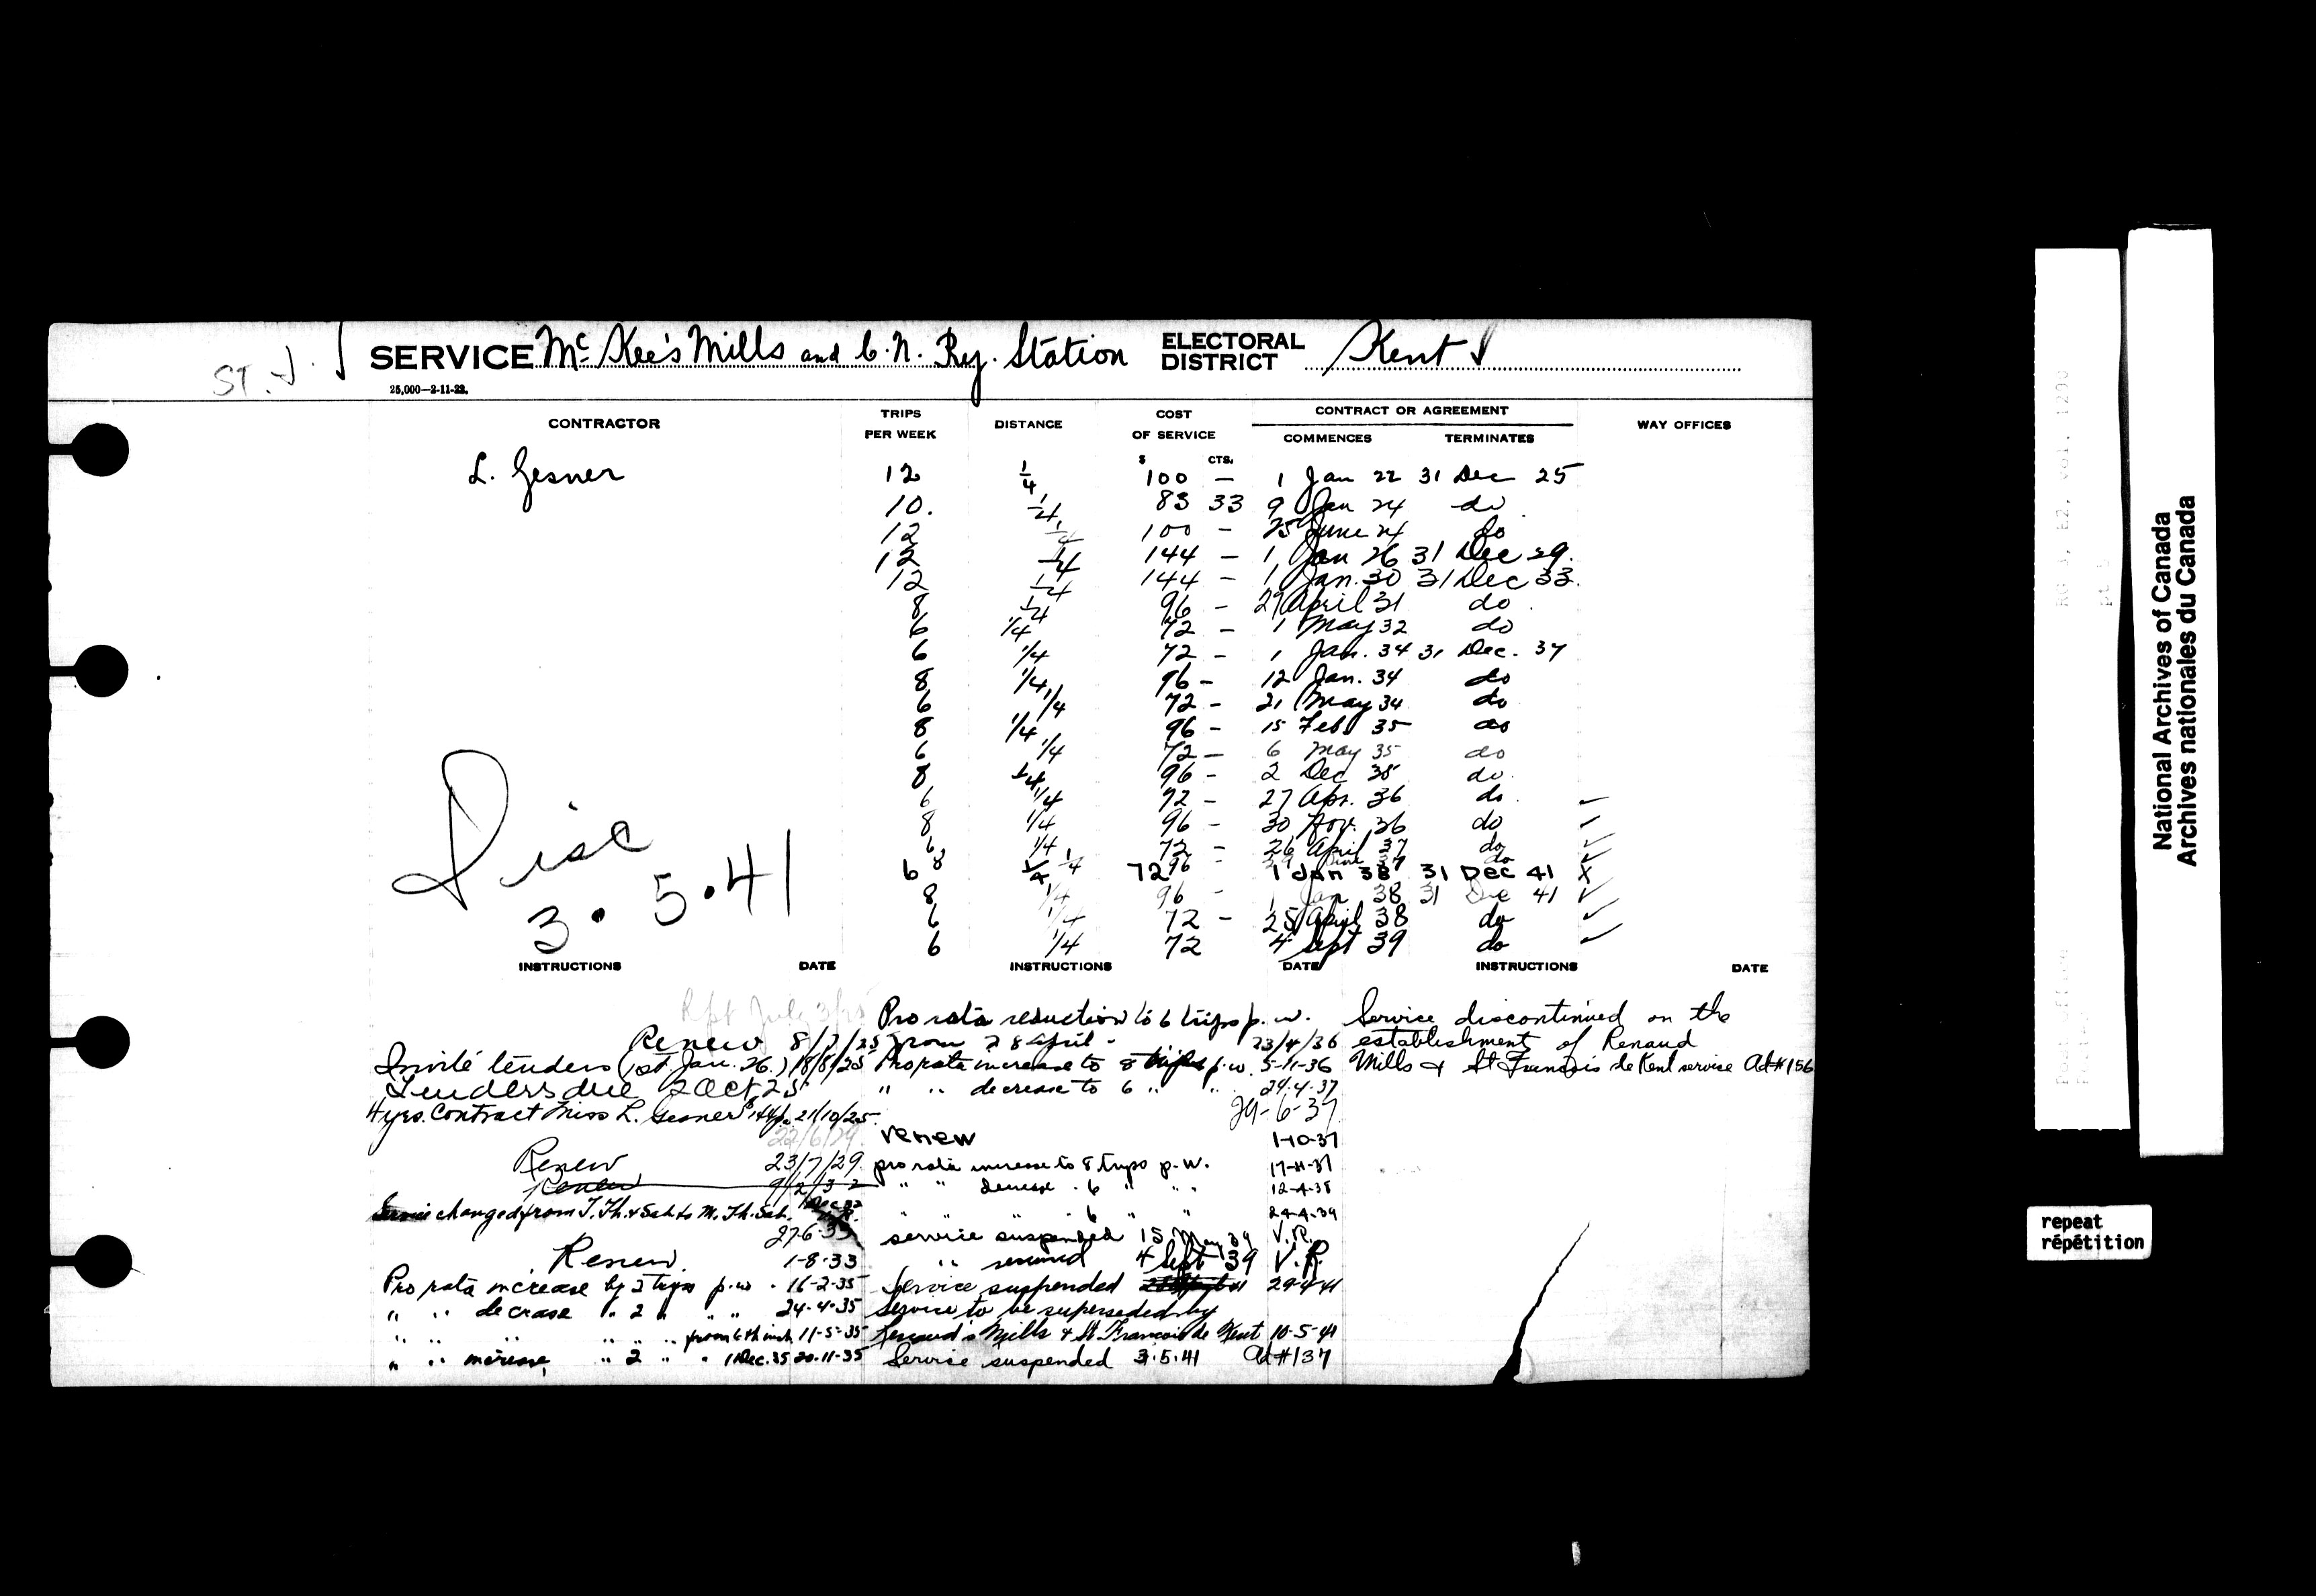 ST. J.
SERVICE Mc Kee's Mills and C. N. Ry. Station ELECTORAL DISTRICT Kent
25,000—2-11-23.
CONTRACTOR TRIPS PER WEEK DISTANCE COST OF SERVICE CONTRACT OR AGREEMENT COMMENCES TERMINATES WAY OFFICES
$ CTS.
L. Gesner 12 1/4 100 — 1 Jan 22 31 Dec 25
10. 1/4 83 33 9 Jan 24 do
12 1/4 100 - 25 June 24 do
12 1/4 144 - 1 Jan 26 31 Dec 29.
12 1/4 144 - 1 Jan. 30 31 Dec 33.
8 1/4 96 - 27 April 31 do
6 1/4 72 - 1 May 32 do
6 1/4 72 - 1 Jan. 34 31 Dec. 37
8 1/4 96 - 12 Jan. 34 do
6 1/4 72 - 21 May 34 do
8 1/4 96 - 15 Feb 35 do
6 1/4 72 - 6 May 35 do
8 1/4 96 - 2 Dec 35 do.
6 1/4 72 - 27 Apr. 36 do.
8 1/4 96 - 30 Nov. 36 do
6 1/4 72 - 26 April 37 do
8 1/4 96 - 37 do
6 1/4 72 1 Jan 38 31 Dec 41 X
8 1/4 96 - 1 Jan 38 31 Dec 41
6 1/4 72 - 25 April 38 do
6 1/4 72 4 Sept 39 do
Disc
3. 5.41
INSTRUCTIONS DATE INSTRUCTIONS DATE INSTRUCTIONS DATE
Rpt July 3/25
Renew 8/7/25
Invite tenders (1st. Jan. 26.) 18/8/25
Tenders due 2 Oct 25
4 yrs. Contract Miss L. Gesner $144 p. 21/10/25.
22/6/29.
Renew 23/7/29.
Renew 9/2/32
Service changed from T. Th. & Sat. to M. Th. Sat.
27-6-33
Renew. 1-8-33
Pro rata increase by 2 trips p.w. 16-2-35
" " decrease " 2 " " " 24-4-35
" " " " " " from 6th inst. 11-5-35
" " increase, " 2 " " 1 Dec. 35 20-11-35
Pro rata reduction to 6 trips p. w.
from 28 April - 23/4/36
Pro rata increase to 8 trips p.w. 5-11-36
" " decrease to 6 " " 24-4-37
29-6-37
renew 1-10-37
pro rata increase to 8 trips p.w. 17-11-37
" " decrease . 6 " " 12-4-38
" " 6 " " 24-4-39
service suspended 15 May 39 V.R.
" resumed 4 Sept 39 V.R.
Service suspended 29-4-41
Service to be superseded by
Renaud's Mills & St Francois de Kent 10-5-41
Service suspended 3.5.41 Ad # 137
Service discontinued on the
establishment of Renaud
Mills & St François de Kent service Ad # 156
National Archives of Canada
Archives nationales du Canada
repeat
répétition